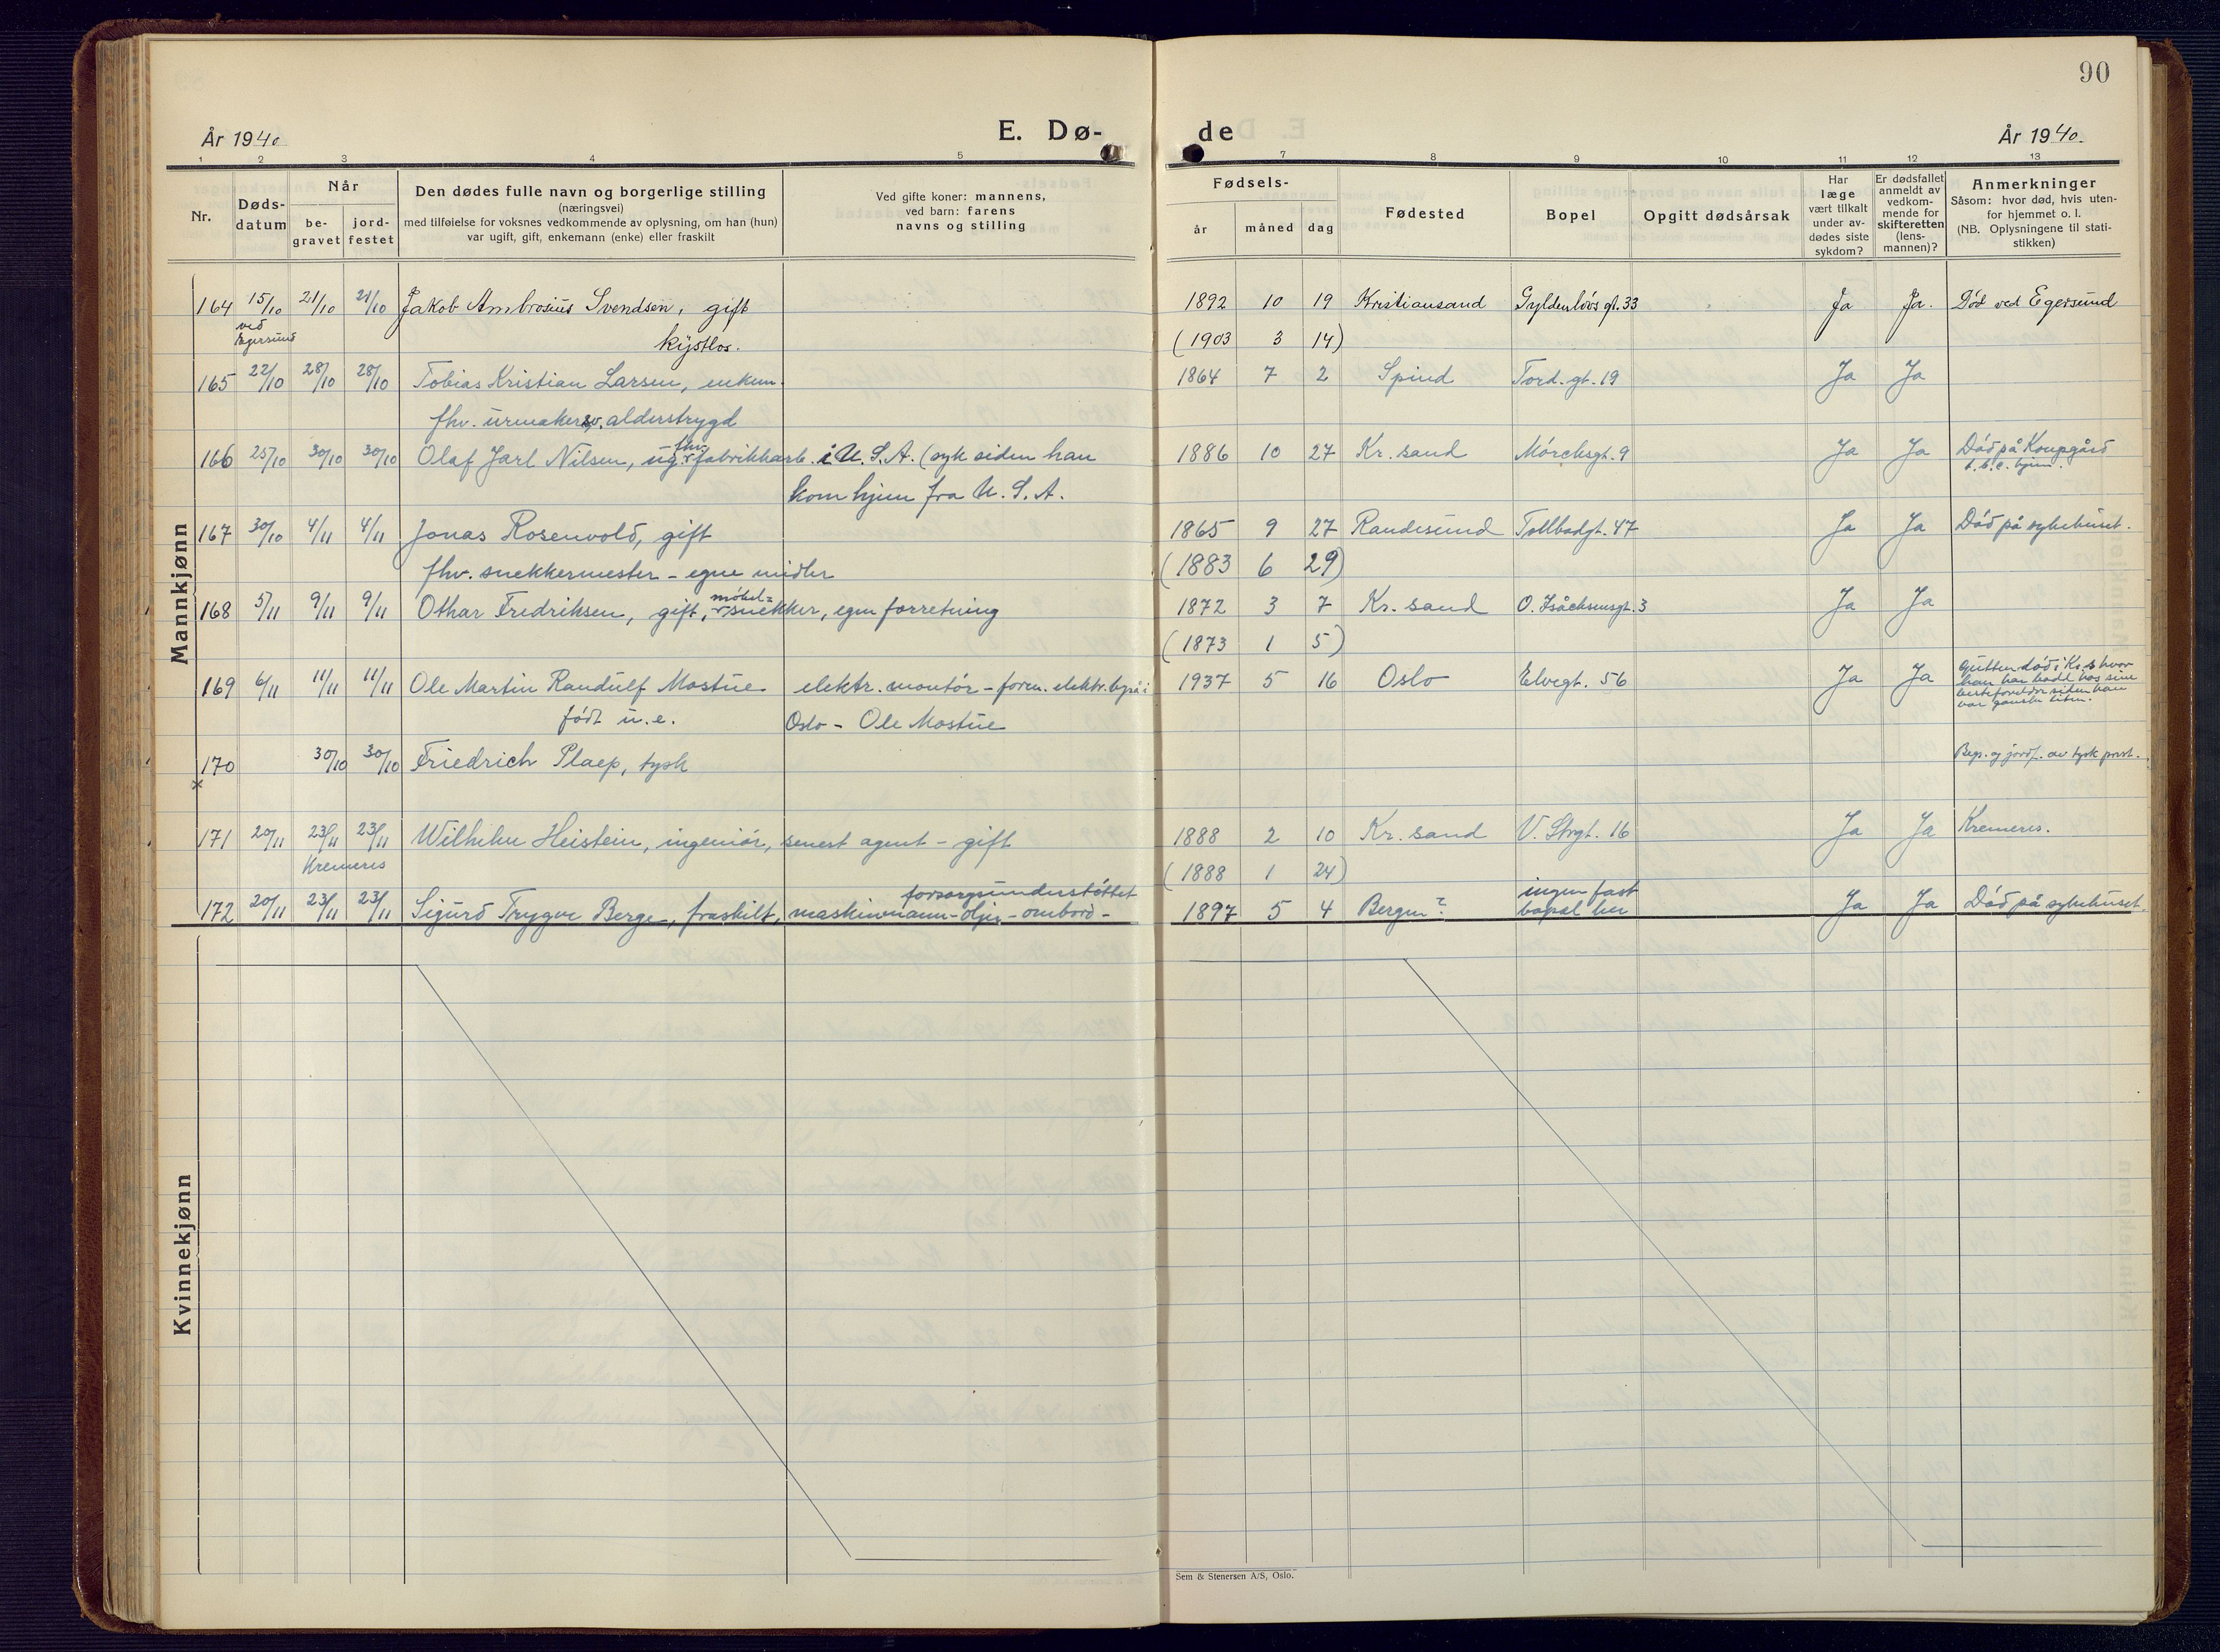 90
År 1940
E. Dø-
de
År 1940.
1 2 3 4 5 7 8 9 10 11 12 13
Nr.
Døds-
datum
Når
be-
gravet
jord-
festet
Den dødes fulle navn og borgerlige stilling
(næringsvei)
med tilføielse for voksnes vedkommende av oplysning, om han (hun)
var ugift, gift, enkemann (enke) eller fraskilt
Ved gifte koner: mannens,
ved barn: farens
navns og stilling
Fødsels-
år
måned
dag
Fødested
Bopel
Opgitt dødsårsak
Har
læge
vært tilkalt
under av-
dødes siste
sykdom?
Er dødsfallet
anmeldt av
vedkom-
mende for
skifteretten
(lens-
mannen)?
Anmerkninger
Såsom: hvor død, hvis uten-
for hjemmet o. l.
(NB. Oplysningene til stati-
stikken)
Mannkjønn
164 15/10 21/10 21/10 Jakob Ambrosius Svendsen, gift 1892 10 19 Kristiansand Gyldenløvs gt. 33 Ja Ja. Død ved Egersund
ved
Egersund
kystlos. (1903 3 14)
165 22/10 28/10 28/10 Tobias Kristian Larsen, enkem. 1864 7 2 Spind Tord. gt. 19 Ja Ja
fhv. urmaker, alderstrygd
166 25/10 30/10 30/10 Olaf Jarl Nilsen, ug. fhv. fabrikkarb. i U.S.A. (syk siden han 1886 10 27 Kr. sand Mørchsgt. 9 Ja Ja Død på Kongsgård
t.b.c. hjem.
kom hjem fra U.S.A.
167 30/10 4/11 4/11 Jonas Rosenvold, gift 1865 9 27 Randesund Tollbodgt. 47 Ja Ja Død på sykehuset.
fhv. snekkermester - egne midler (1883 6 29)
168 5/11 9/11 9/11 Othar Fredriksen, gift, møbel=snekker, egen forretning 1872 3 7 Kr. sand O. Isåchsensgt. 3 Ja Ja
(1873 1 5)
169 6/11 11/11 11/11 Ole Martin Randulf Mostue elektr. montør - foren. elektr. byrå i 1937 5 16 Oslo Elvegt. 56 Ja Ja Gutten død i Kr.s hvor
han har bodd hos sine
besteforeldre siden han
var ganske liten.
født u.e. Oslo - Ole Mostue
170 30/10 30/10 Friedrich Plaep, tysk Begr. og jordf. av tysk prest.
×
171 20/11 23/11 23/11 Wilhelm Heistein, ingeniør, senest agent - gift 1888 2 10 Kr. sand V. Strgt. 16 Ja Ja Kremeres.
Kremeres (1888 1 24)
172 20/11 23/11 23/11 Sigurd Trygve Berge, fraskilt, maskinmann - oljer - ombord - forsorgsunderstøttet 1897 5 4 Bergen? ingen fast
bopel her Ja Ja Død på sykehuset.
Kvinnekjønn
Sem & Stenersen A/S, Oslo.